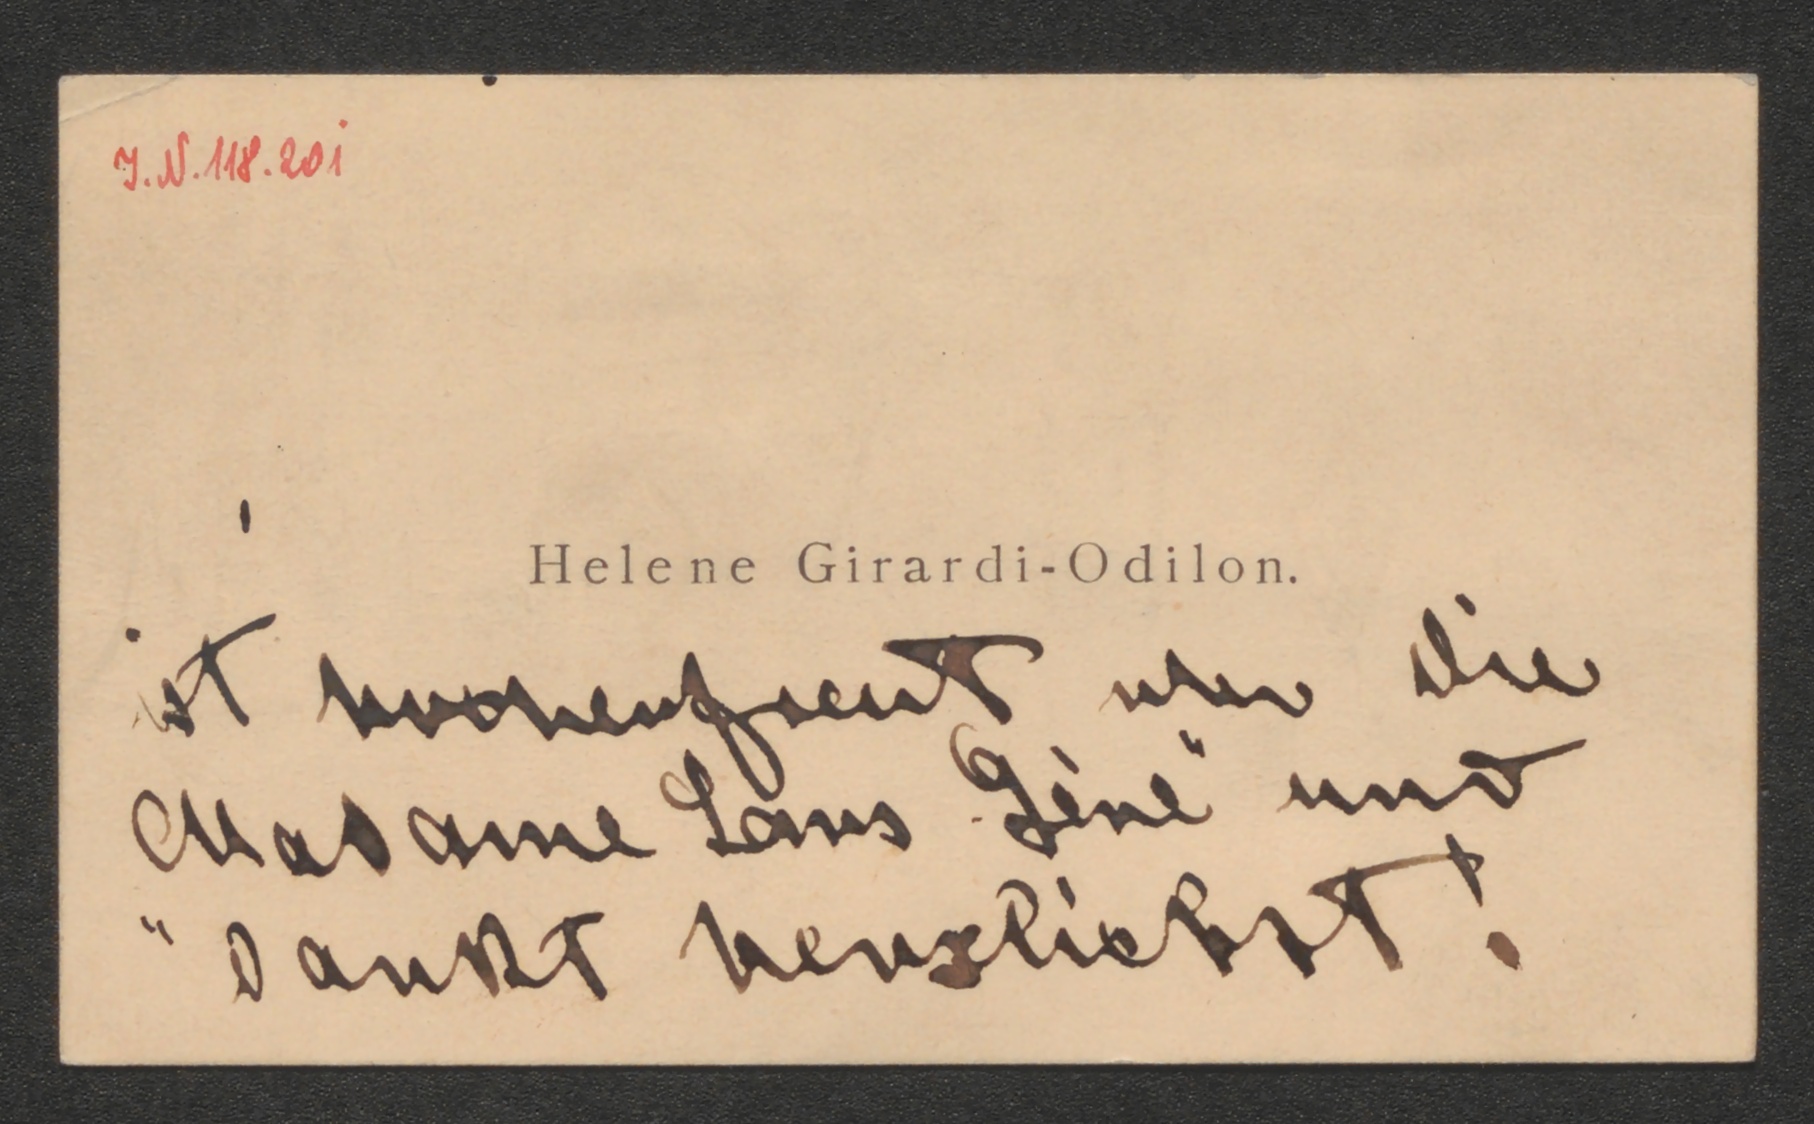 J.N. 118.201
Helene Girardi-Odilon.
ist hocherfreut über die
Madame Sans Gène" und
" dankt herzlichst!